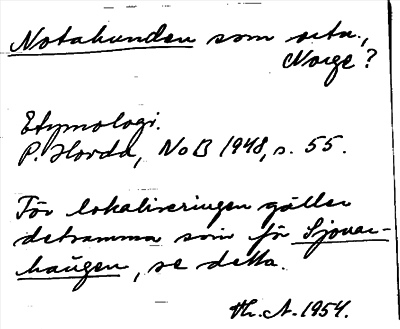 Notahunden som ortn.,
Norge?
Etymologi.
P. Hovda, NoB 1948, s. 55.
För lokaliseringen gäller
detsamma som för Sjovar-
haugen, se detta.
Th. A. 1954.